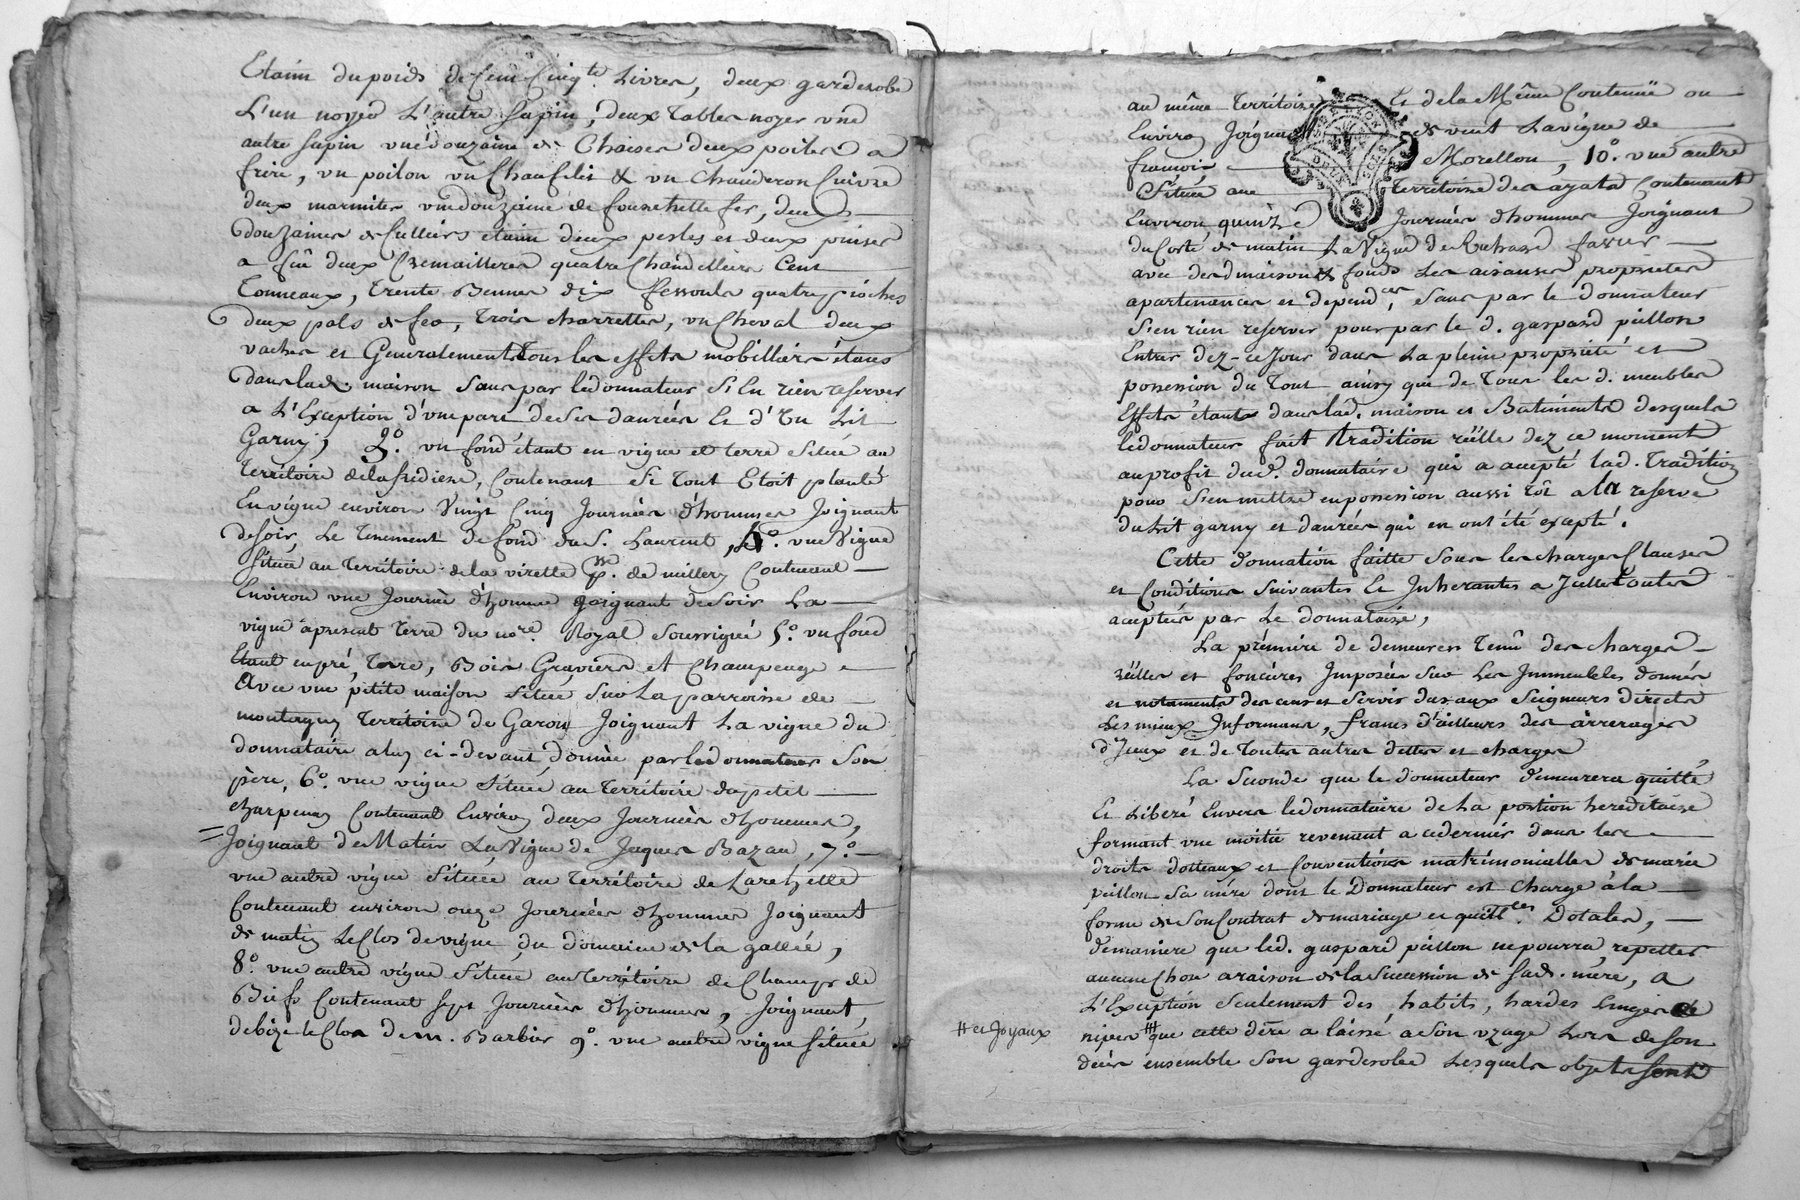 Etaim du poids de Cent Cinq.te Livres, deux garderobe
L'un noyer L'autre sapin, deux tables noyer une
autre sapin une douzaine de Chaises deux poiles a
frire, un poilon un Chaufelit & un Chauderon Cuivre
deux marmites une douzaine de fourchette fer, deux
douzaines de Culliers etaim deux pesles et deux pinses
a feu deux Cremailleres quatre Chandelliers Cent
Tonneaux, trente Bennes dix fessouls quatre pioches
deux pals de fer, trois charrettes, un Cheval deux
vaches et Generalement tous les effets mobilliers étans
dans lad. maison sans par le donnateur s'En rien reserver
a L'Exception d'une part de ses danrées Et d'Un Lit
Garny, 3.° un fond étant en vigne et terre située au
territoire de la fredière, Contenant si tout Etoit planté
En vigne environ Vingt Cinq Journées d'hommes Joignant
de soir, Le tenement de fond du S. Laurent, 4.° une Vigne
située au territoire de la virette p.sse de millery Contenant
Environ une Journée d'homme joignant de soir La
vigne apresent terre du no.re Royal soussigné 5.° un fond
Etant en pré, terre, Bois Graviers et Champeage
Avec une petite maison située sur La parroisse de
montagny territoire de Garon Joignant La vigne du
donnataire a luy ci-devant donnée par le donnateur son
père, 6.° une vigne située au territoire du petit
charpenay Contenant Environ deux Journées d'hommes,
= Joignant de Matin La Vigne de Jaques Bazan, 7.°
une autre vigne située au territoire de
Contenant environ onze Journées d'hommes Joignant
de matin Le Clos de vigne du domaine de la gallée,
8.° une autre vigne située au territoire de Champs de
Biefs Contenant sept Journées d'hommes, Joignant,
de bize le Clos de m. Barbier 9.° une autre vigne située
au même territoire Et de la Même Contenuë ou
Environ Joignant de vent La vigne de
françois Morellon, 10.° une autre
Située au territoire des ayats Contenant
Environ quinze Journées d'hommes Joignant
du Costé de matin La Vigne de
avec des d. maisons & fonds Les aisances proprietes
apartenances et depend.ces, sans par le donnateur
s'en rien reserver pour par le d. gaspard pillon
Entrer dez-ce Jour dans La pleine proprieté et
possession du tout ainsy que de tous les d. meubles
Effets étants dans lad. maison et Batiments desquels
le donnateur fait tradition réélle dez ce moment
au profit dud. donnataire qui a accepté lad. tradition
pour s'en mettre en possession aussi tôt a la reserve
du Lit garny et danrées qui en ont été excepté.
Cette donnation faitte sous les charges Clauses
et Conditions suivantes Et Inherantes a Icelle toutes
acceptées par Le donnataire,
La prémiere de demeurer tenû des charges
réélles et fonciéres Imposées sur Les Immeubles donnés
et notamment des cens et servis dus aux seigneurs directs
Les mieux Informans, francs d'ailleurs des arrerages
d'Iceux et de toutes autres dettes et charges
La Seconde que le donnateur demeurera quitte
Et Liberé Envers le donnataire de La portion hereditaire
formant une moitié revenant a ce dernier dans les
droits dotteaux et Conventions matrimonialles de marie
peillon sa mére dont le Donnateur est Chargé à la
forme de son Contrat de mariage et quitt.ces Dotales,
de maniere que led. gaspard pillon ne pourra, repetter
aucune Chose a raison de la Succession de sad. mére, a
L'Exception seulement des habits, hardes linges et
# et Joyaux
nipes # que cette dére a laissé a son uzage Lors de son
décés ensemble son garderobe Lesquels objets sont